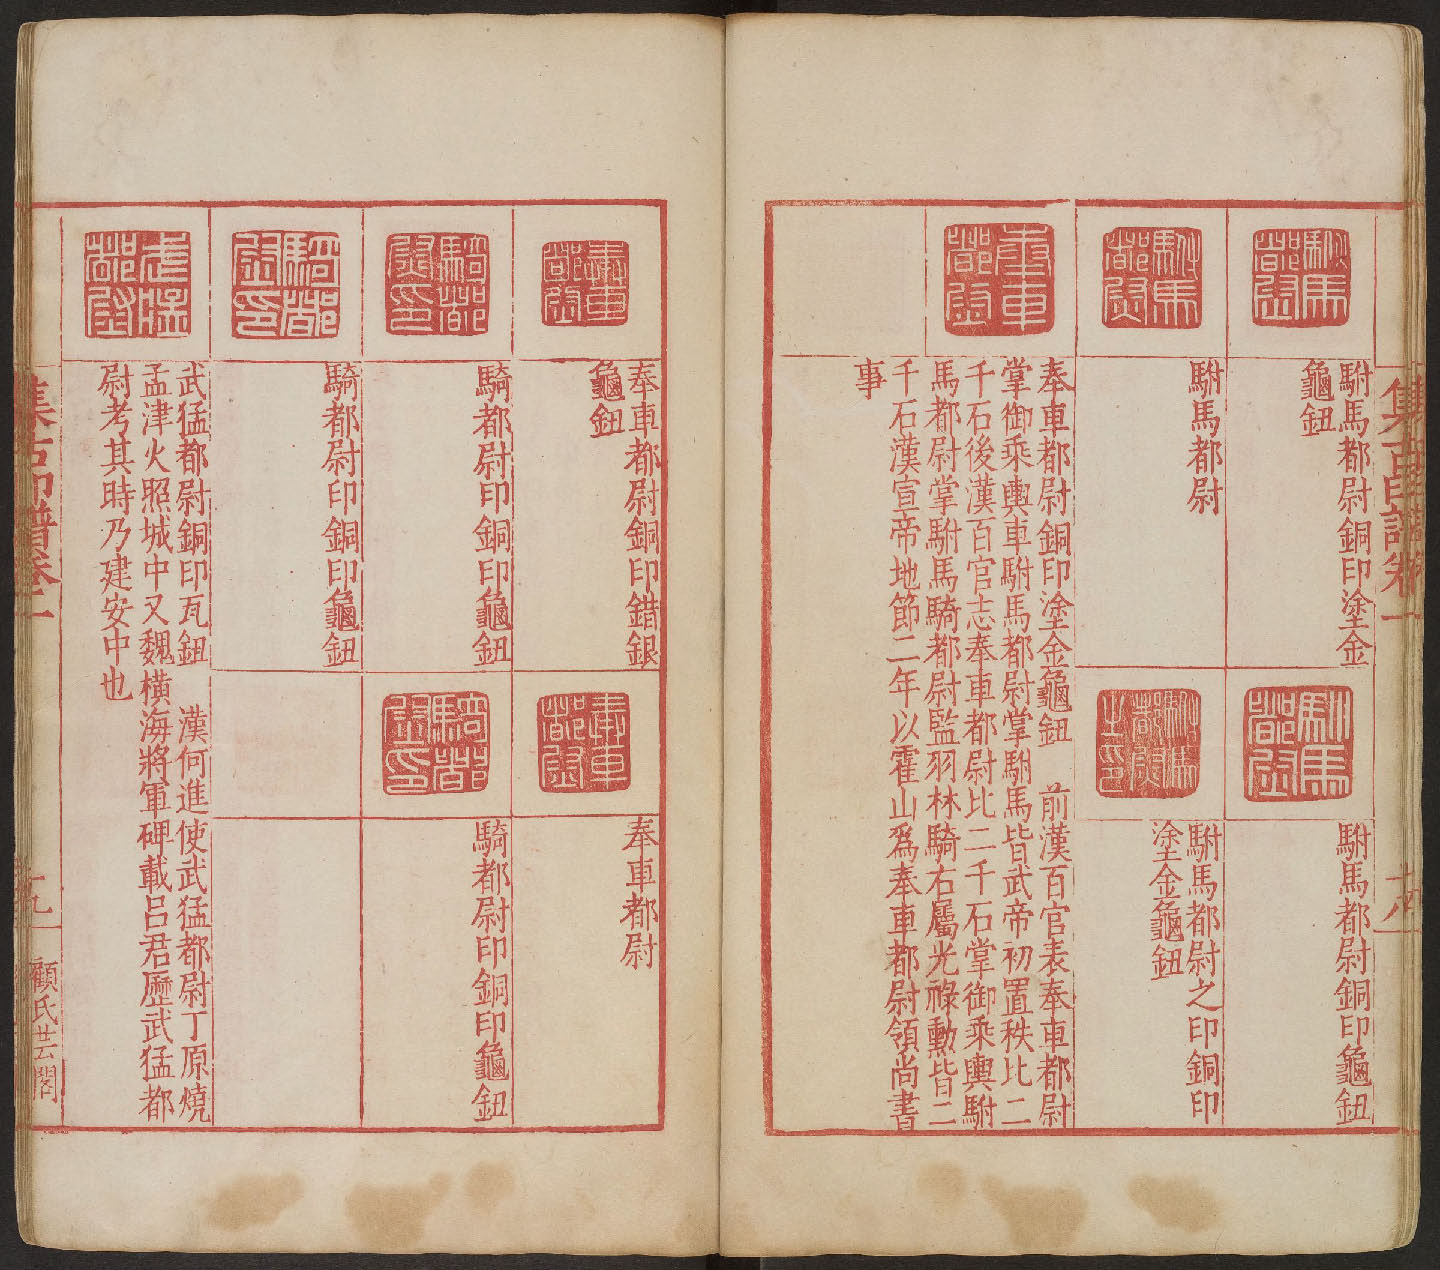 集古印譜卷二
十八
駙馬都尉
駙馬都尉銅印塗金
龜鈕
駙馬都尉
駙馬都尉銅印龜鈕
駙馬都尉
駙馬都尉
駙馬都尉之印
駙馬都尉之印銅印
塗金龜鈕
奉車都尉
奉車都尉銅印塗金龜鈕　前漢百官表奉車都尉
掌御乘輿車駙馬都尉掌駙馬皆武帝初置秩比二
千石後漢百官志奉車都尉比二千石掌御乘輿駙
馬都尉掌駙馬騎都尉監羽林騎右屬光祿勳皆二
千石漢宣帝地節二年以霍山爲奉車都尉領尚書
事
奉車都尉
奉車都尉銅印錯銀
龜鈕
奉車都尉
奉車都尉
騎都尉印
騎都尉印銅印龜鈕
騎都尉印
騎都尉印銅印龜鈕
騎都尉印
騎都尉印銅印龜鈕
武猛都尉
武猛都尉銅印瓦鈕　漢何進使武猛都尉丁原燒
孟津火照城中又魏橫海將軍碑載呂君歷武猛都
尉考其時乃建安中也
集古印譜卷二
十九
顧氏芸閣